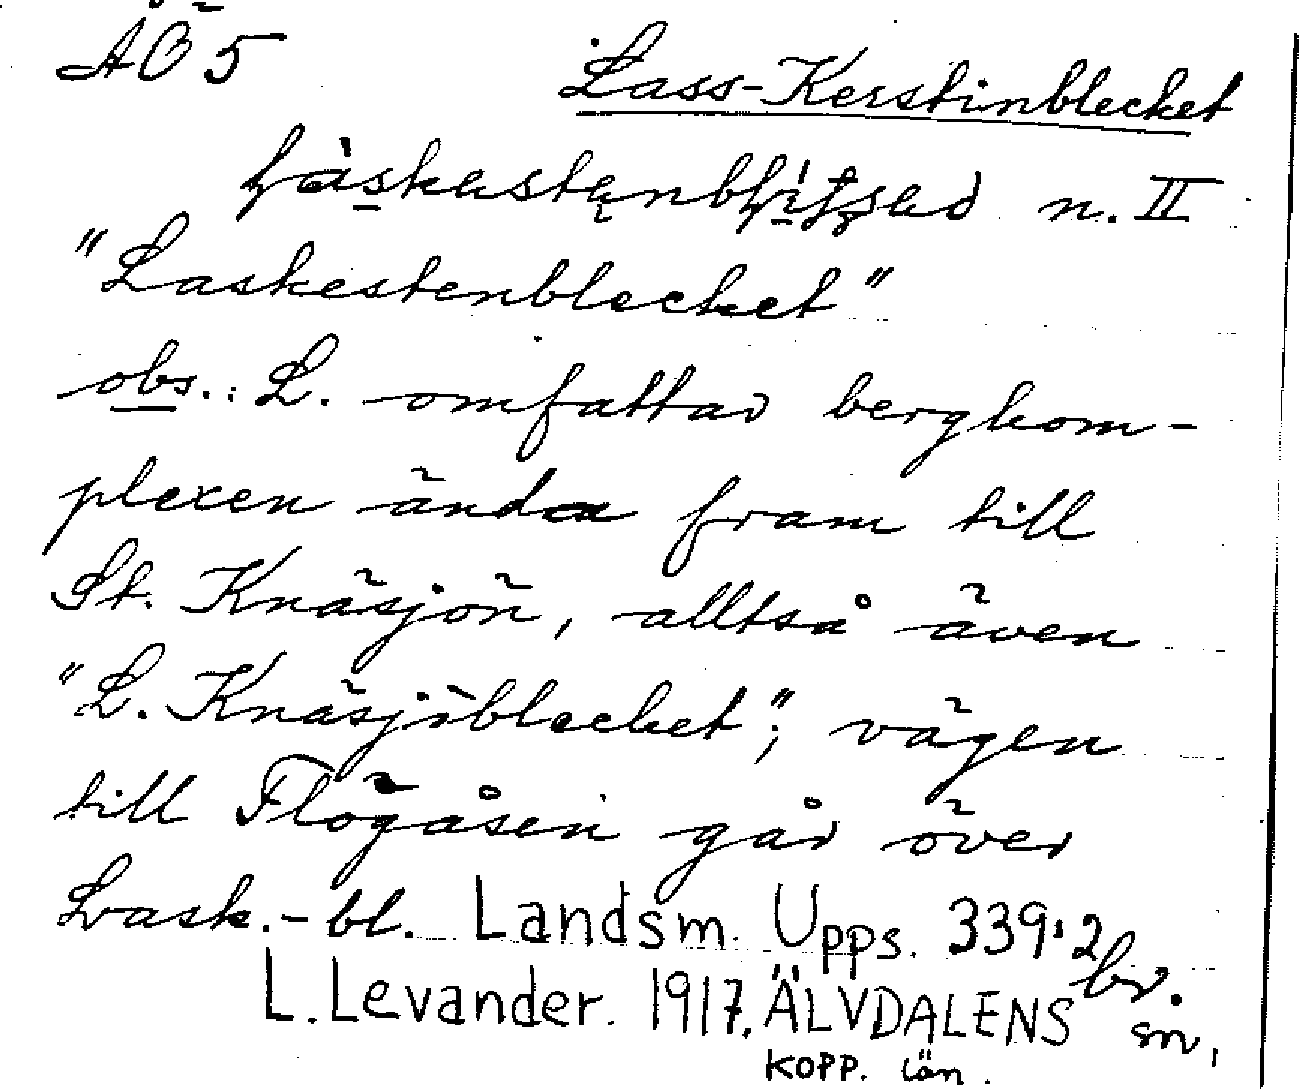 ÅÖ 5
Lass-Kerstinblecket
n. II
"Laskestenblecket"
obs.: L. omfattar bergkom-
plexen ända fram till
St. Knäsjön, alltså även
"L. Knäsjöblecket"; vägen
till Flögåsen går över
Lask.-bl. Landsm. Upps. 339:2 br.
L. Levander. 1917. ÄLVDALENS sn,
KOPP. län.